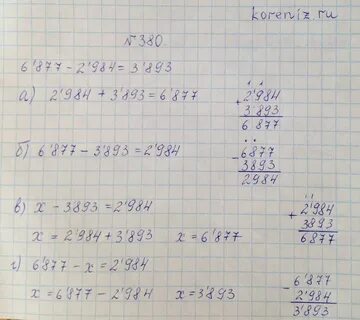 koreniz.ru
№380
6'877 - 2'984 = 3'893
а) 2'984 + 3'893 = 6'877
+ 2'984
3'893
6'877
б) 6'877 - 3'893 = 2'984
- 6877
3893
2984
в) x - 3893 = 2'984
x = 2'984 + 3'893 x = 6'877
+ 2'984
3893
6877
г) 6'877 - x = 2'984
x = 6'877 - 2'984 x = 3'893
- 6'877
2'984
3'893